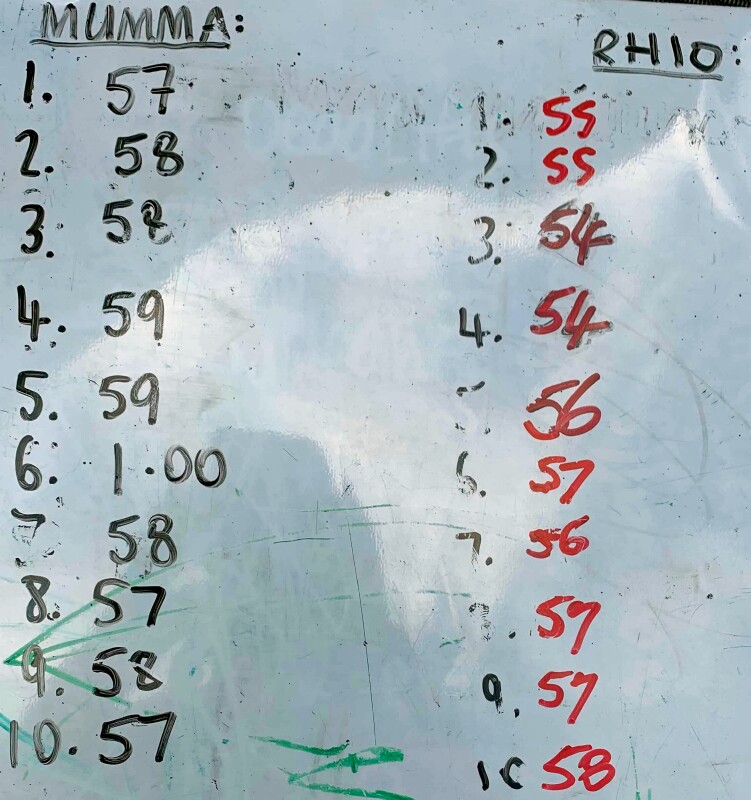 MUMMA:
1. 57
2. 58
3. 58
4. 59
5. 59
6. 1.00
7 58
8. 57
9. 58
10. 57
RHIO:
1. 55
2. 55
3. 54
4. 54
5 56
6. 57
7. 56
. 57
9. 57
10 58